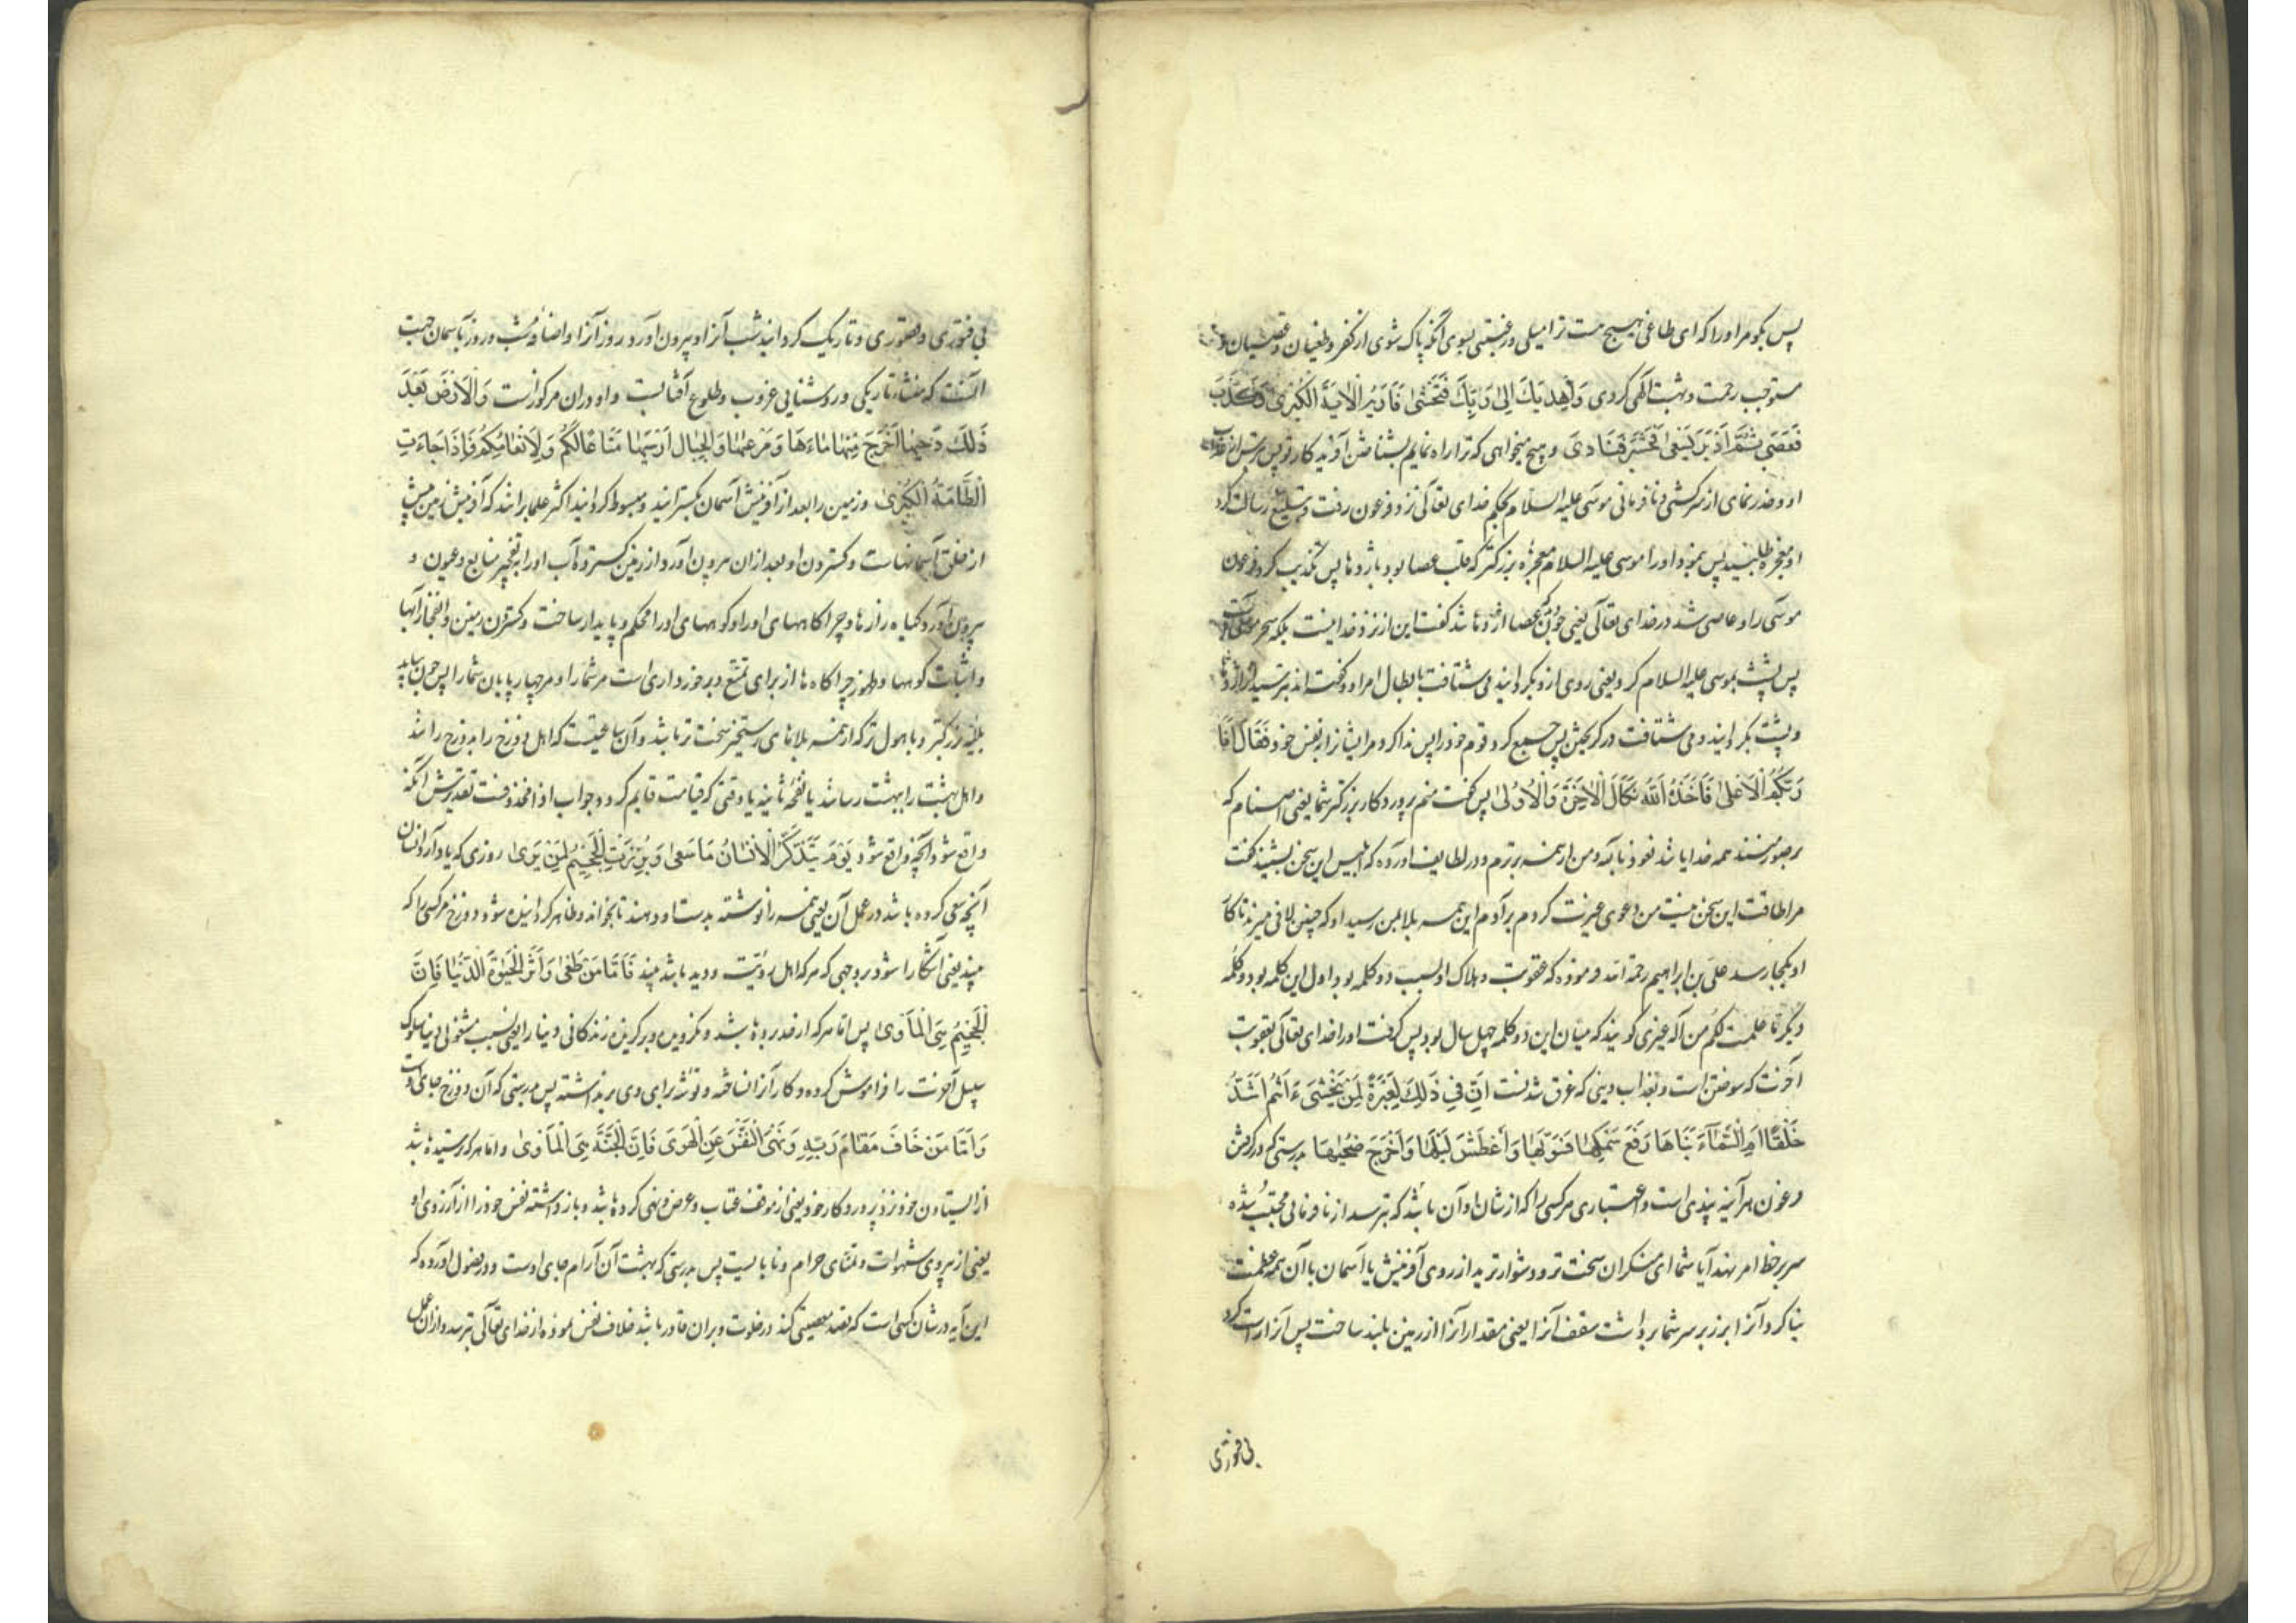 پس بگو مر او را که ای طاغی هیچ هست ترا میلی و رغبتی بسوی آنکه پاک شوی از کفر و طغیان و عصیان
مستوجب رحمت و بهشت الهی کردی وَاَهْدِیَكَ اِلیٰ رَبِّكَ فَتَخْشیٰ فَاَرٰیهُ الْاٰیَةَ الْکُبْریٰ فَکَذَّبَ
وَعَصیٰ ثُمَّ اَدْبَرَ یَسْعیٰ فَحَشَرَ فَنَادیٰ و هیچ میخواهی که ترا راه نمایم بشناختن آفریدکار تو پس بترسی از
او و حذر نمای از سرکشی و نافرمانی موسی علیه السلام بحکم خدای تعالی نزد فرعون رفت و تبلیغ رسالت کرد
او معجزه طلبید پس بنمود او را موسی علیه السلام معجزهٔ بزرکتر که قلب عصا بود باژدها پس تکذیب کرد فرعون
موسی را و عاصی شد در خدای تعالی یعنی چون عصا اژدها شد گفت این از نزد خدا نیست بلکه سحر
پس پشت بموسی علیه السلام کرد یعنی روی ازو بگردانید می شتافت بابطال امر او و گفته اند بترسید از اژدها
و پشت بگردانید و می شتافت در گریختن پس جمیع کرد قوم خود را پس ندا کرد مر ایشانرا بنفس خود فَقَالَ اَنَا
رَبُّکُمُ الْاَعْلیٰ فَاَخَذَهُ اللّٰهُ نَکَالَ الْاٰخِرَةِ وَالْاُولیٰ پس گفت منم پروردکار بزرکتر شما یعنی اصنام که
بر صور منند همه خدایانند نعوذ بالله و من از همه برترم و در لطایف آورده که ابلیس این سخن بشنید گفت
مرا طاقت این سخن نیست من دعوی خیریت کردم بر آدم این همه بلا بمن رسید او که چنین لافی میزند تا کار
او بکجا رسد علی بن ابراهیم رحمة الله فرموده که عقوبت و هلاک او بسبب دو کلمه بود اول این کلمه بود و کلمه
دیگر ما علمت لکم من اله غیری گویند که میان این دو کلمه چهل سال بود پس گرفت او را خدای تعالی بعقوبت
آخرت که سوختن است و بعذاب دنیی که غرق شدنست اِنَّ فِی ذٰلِكَ لَعِبْرَةً لِمَنْ یَخْشیٰ ءَاَنْتُمْ اَشَدُّ
خَلْقًا اَمِ السَّمَآءُ بَنَاهَا رَفَعَ سَمْکَهَا فَسَوّٰیهَا وَاَغْطَشَ لَیْلَهَا وَاَخْرَجَ ضُحٰیهَا بدرستی که در گرفتن
فرعون هر آینه پندی است و اعتباری مر کسی را که از شان او آن باشد که بترسد از نافرمانی مجتنب شده
سر بر خط امر نهند آیا شما ای منکران سخت تر و دشوارترید از روی آفرینش یا آسمان با آن همه عظمت
بنا کرد آنرا بر زبر سر شما برداشت سقف آنرا یعنی مقدار آنرا از زمین بلند ساخت پس آنرا راست کرد
بی فتوری
بی فتوری و قصوری و تاریک گردانید شب آنرا و بیرون آورد روز آنرا و اضافه شب و روز بآسمان جهت
آنست که منشاء تاریکی و روشنایی غروب و طلوع آفتابست و او در آن مرکوزست وَالْاَرْضَ بَعْدَ
ذٰلِكَ دَحٰیهَا اَخْرَجَ مِنْهَا مَآءَهَا وَمَرْعٰیهَا وَالْجِبَالَ اَرْسٰیهَا مَتَاعًا لَکُمْ وَلِاَنْعَامِکُمْ فَاِذَا جَآءَتِ
الطَّآمَّةُ الْکُبْریٰ و زمین را بعد از آفرینش آسمان بگسترانید و مبسوط گردانید اکثر علما برانند که آفرینش زمین پیش
از خلق آسمانهاست و گستردن او بعد از آن بیرون آورد از زمین گسترده آب او را بتفجیر منابع و عیون و
بیرون آورد گیاه زارها و چراگاههای او را و کوههای او را محکم و پایدار ساخت و گستردن زمین و انفجار آبها
و اثبات کوهها و ظهور چراگاهها از برای تمتع و برخورداری است مر شما را و مر چهارپایان شما را پس چون بیاید
بلیهٔ بزرکتر و با هول تر که از همه بلاهای رستخیز سخت تر باشد و آن ساعتیست که اهل دوزخ را بدوزخ رانند
و اهل بهشت را ببهشت رسانند یا نفخهٔ ثانیه یا وقتی که قیامت قایم گردد و جواب اذا محذوفست تقدیرش آنکه
واقع شود آنچه واقع شود یَوْمَ یَتَذَکَّرُ الْاِنْسَانُ مَا سَعیٰ وَبُرِّزَتِ الْجَحِیمُ لِمَنْ یَریٰ روزی که یاد آرد انسان
آنچه سعی کرده باشد در عمل آن یعنی همه را نوشته بدست او دهند تا بخواند و ظاهر گردانیده شود دوزخ مر کسی را که
بیند یعنی آشکارا شود بروجهی که هر که اهل رؤیت و دید باشد بیند فَاَمَّا مَنْ طَغیٰ وَاٰثَرَ الْحَیٰوةَ الدُّنْیَا فَاِنَّ
الْجَحِیمَ هِیَ الْمَاْویٰ پس اما هر که از حد برده باشد و نگرویده و برگزیده زندگانی دنیا را یعنی بسبب مشغولی دنیا سلوک
سبیل آخرت را فراموش کرده و کار آنرا نساخته و توشه برای وی برنداشته پس بدرستی که آن دوزخ جای اوست
وَاَمَّا مَنْ خَافَ مَقَامَ رَبِّهٖ وَنَهَی النَّفْسَ عَنِ الْهَویٰ فَاِنَّ الْجَنَّةَ هِیَ الْمَاْویٰ و اما هر که ترسیده باشد
از ایستادن خود نزد پروردکار خود یعنی از موقف عتاب و عرض و نهی کرده باشد و باز داشته نفس خود را از آرزوی او
یعنی از پیروی شهوات و تمنای حرام و نابایست پس بدرستی که بهشت آن آرام جای اوست و در فصول آورده که
این آیه در شان کسی است که قصد معصیتی کند در خلوت و بر آن قادر باشد خلاف نفس نموده از خدای تعالی بترسد و از آن عمل